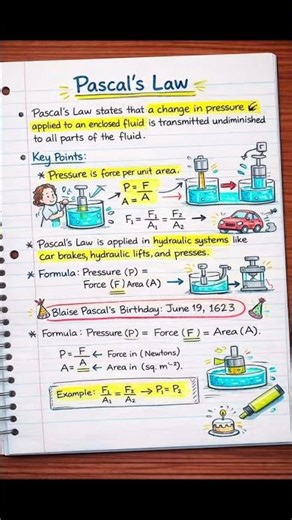 Pascal's Law
Pascal's Law states that a change in pressure
applied to an enclosed fluid is transmitted undiminished
to all parts of the fluid.
Key Points:
* Pressure is force per unit area.
P = F
A = A
F₁ = F₁/A₁ = F₂/A₂
* Pascal's Law is applied in hydraulic systems like
car brakes, hydraulic lifts, and presses.
* Formula: Pressure (P) =
Force (F) Area (A)
Blaise Pascal's Birthday: June 19, 1623
* Formula: Pressure (P) = Force (F) = Area (A).
P = F/A ← Force in (Newtons)
A = A ← Area in (sq. m⁻²).
Example: F₁/A₁ = F₂/A₂ → P₁ = P₂